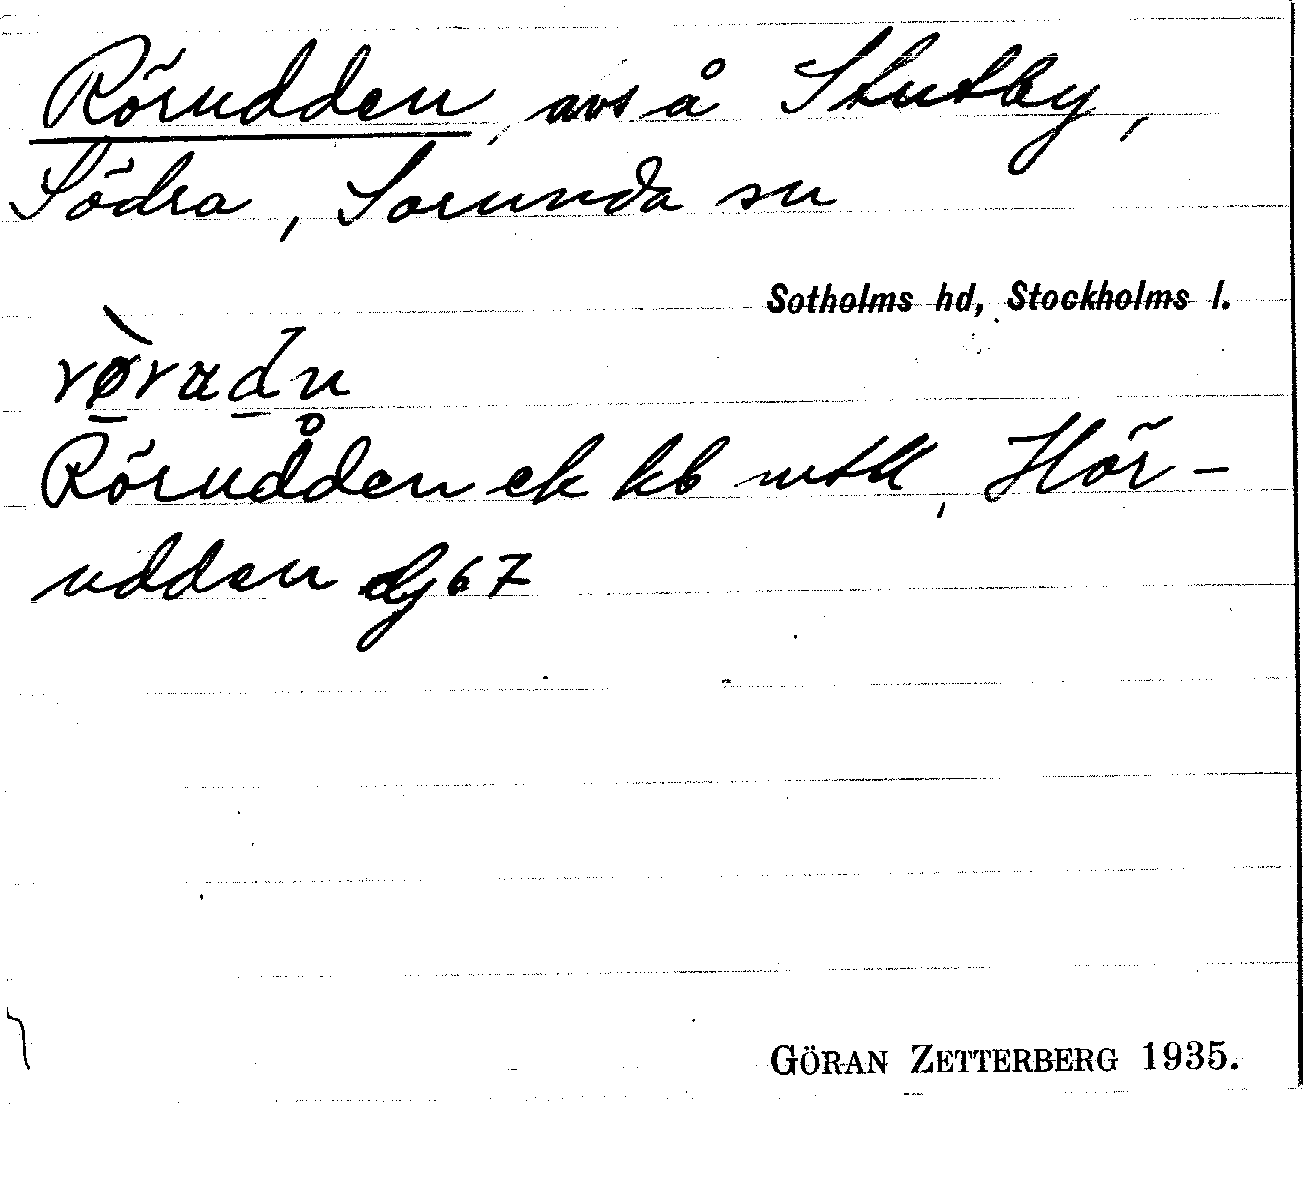 Rörudden, avs å Stutby,
Södra, Sorunda sn
Sotholms hd, Stockholms l.
Rörudden ek kb mtk, Hör-
udden dj 67
GÖRAN ZETTERBERG 1935.